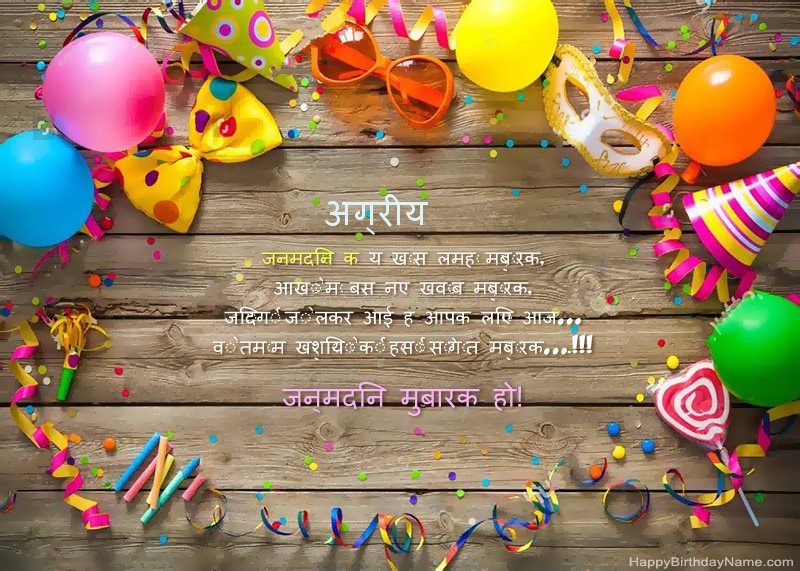 अग्रीय
जनमदनि क य खास लमह मबारक,
आखो म बस नए खवाब मबारक,
जदिगी जो लेकर आई ह आपक लएि आज...
वो तमाम खशयिो की हसी सोगात मबारक...!!!
जन्मदनि मुबारक हो!
HappyBirthdayName.com